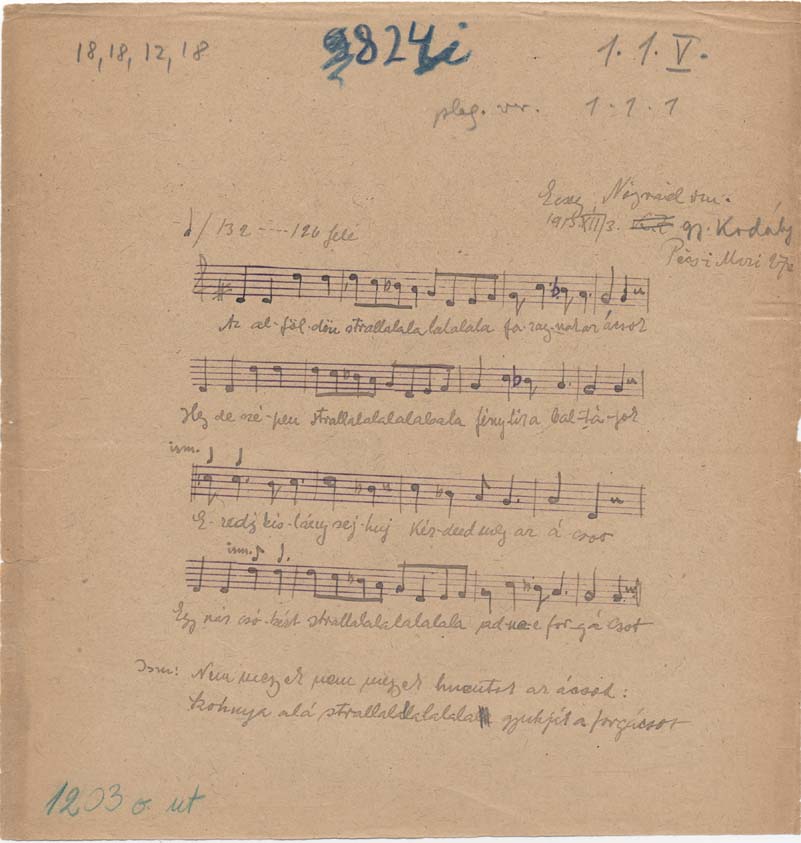 18, 18, 12, 18
9824i
1. 1. V.
pleg. vv. 1. 1. 1
Ecseg, Nógrád vm.
132 ---- 120 felé
1915 XII/3. gy. Kodály
Pécsi Mari 27é
Az al-föl-dön strallalala lalalala fa-rag-nak az ácsok
De szé-pen strallalalalalalala fénylik a bal-tá-jok
ism.
E-redj kis-lány sej-huj Kér-dezd meg az á csot
ism.
Egy pár csó-kért strallalalalalalala ad-na-e for-gá csot
Ism: Nem megyek nem megyek az ácsok:
Kohnya alá strallalallalalala gyukjit a forgácsot
1203 o. ut